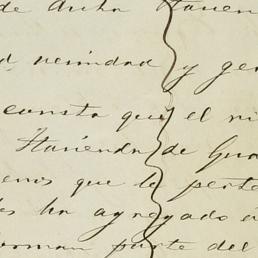 de dicha Hacien
d vecindad y ge
consta que el
Hacienda de Gua
que le perte
ha agregado
forman parte del